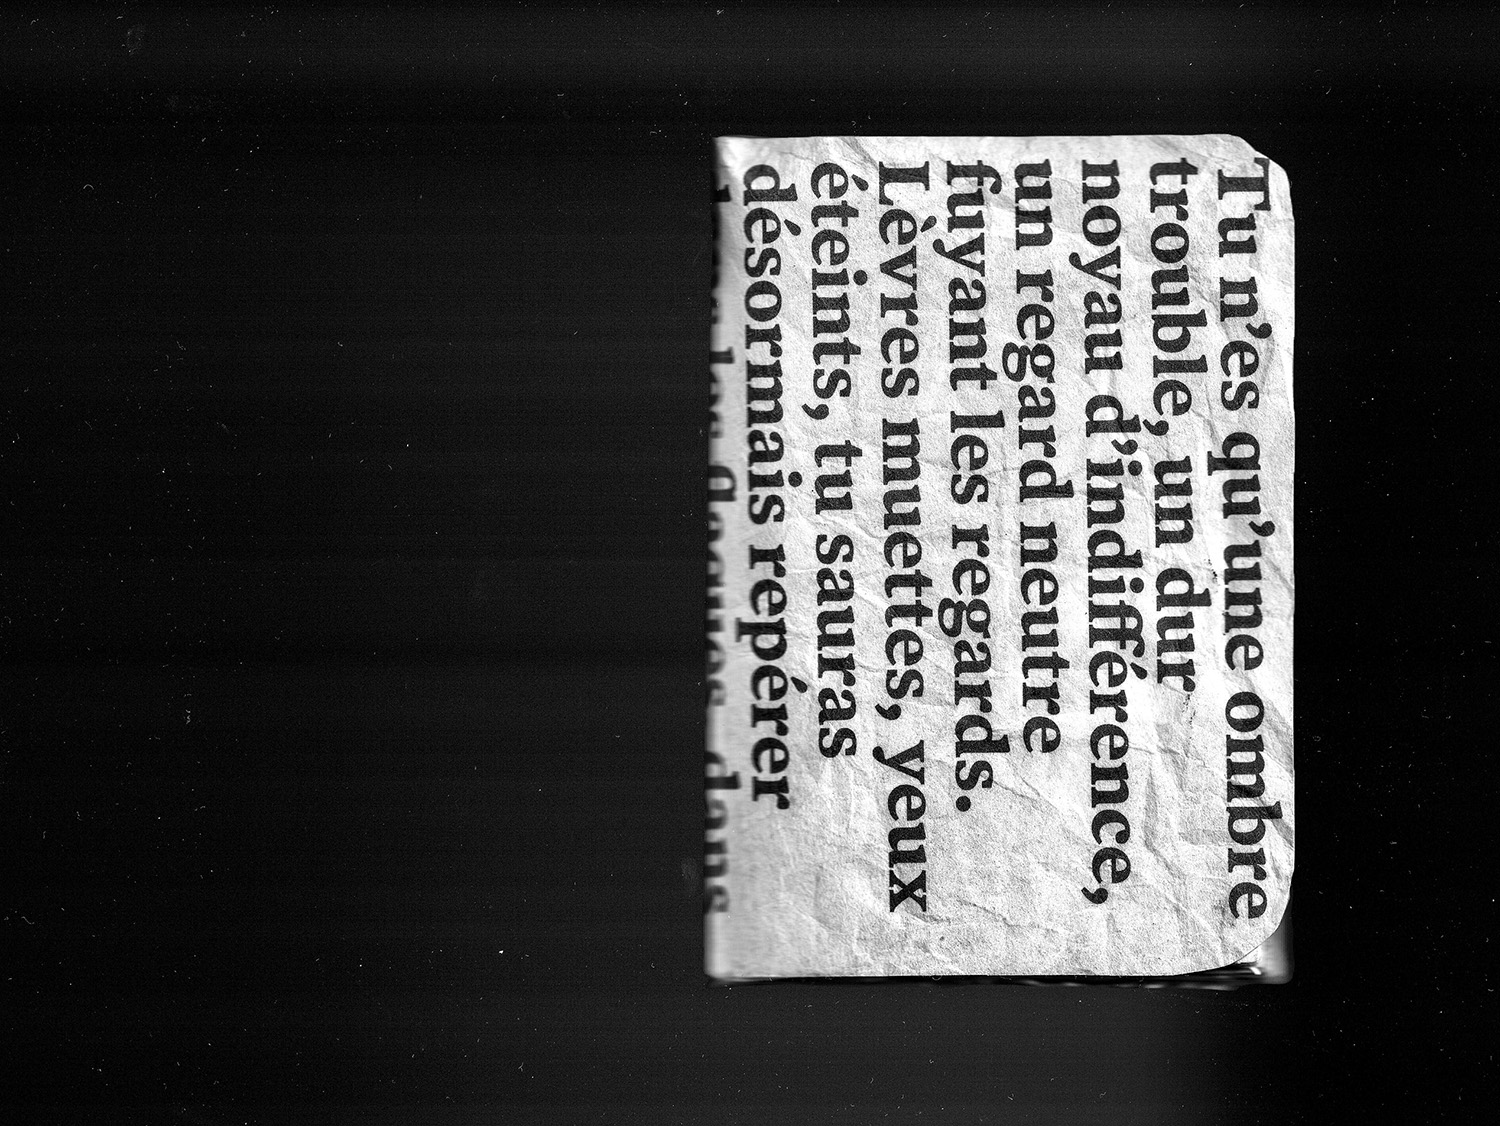 Tu n’es qu’une ombre
trouble, un dur
noyau d’indifférence,
un regard neutre
fuyant les regards.
Lèvres muettes, yeux
éteints, tu sauras
désormais repérer
les flaques, dans